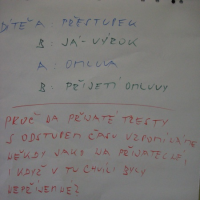 DÍTĚ A: PŘESTUPEK
B: JÁ-VÝROK
A: OMLUVA
B: PŘIJETÍ OMLUVY
PROČ NA PŘIJATÉ TRESTY
S ODSTUPEM ČASU VZPOMÍNÁME
NĚKDY JAKO NA PŘIJATELNÉ,
I KDYŽ V TU CHVÍLI BYLY
NEPŘÍJEMNÉ?